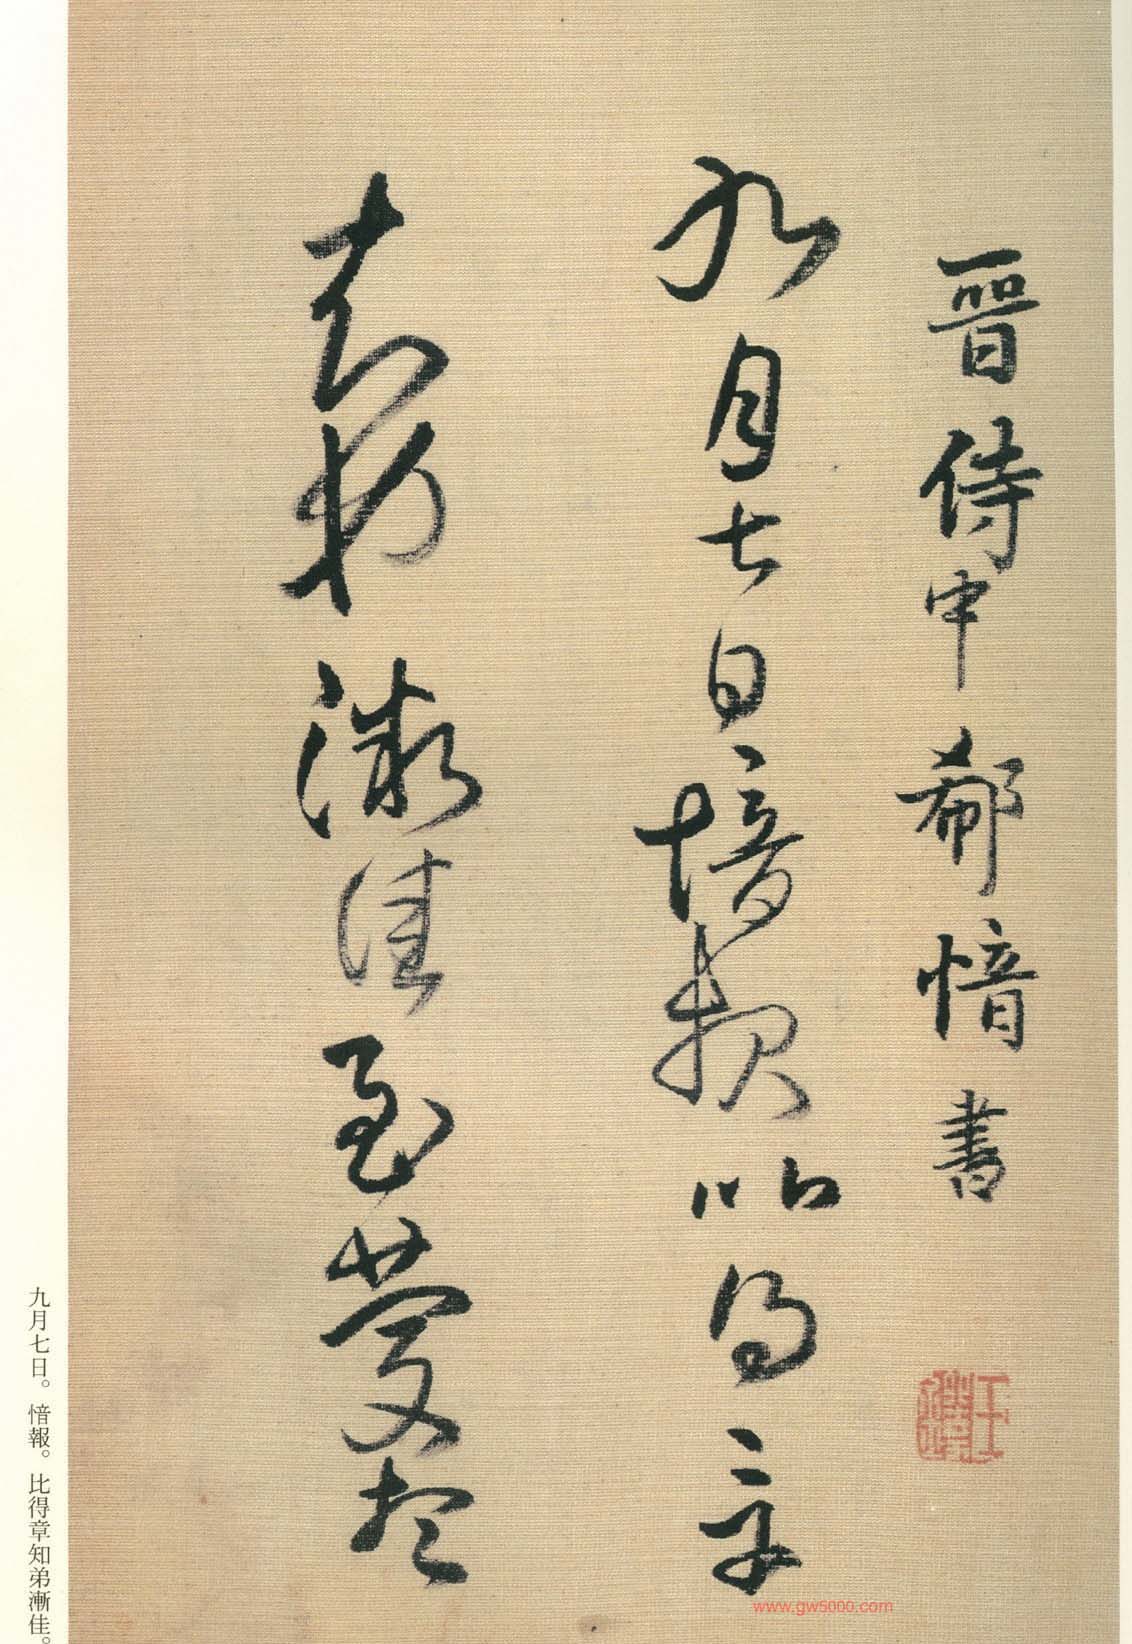 晉侍中郗愔書
九月七日愔報比得章
知弟漸佳至慶想
九月七日。愔報。比得章知弟漸佳。
www.gw5000.com